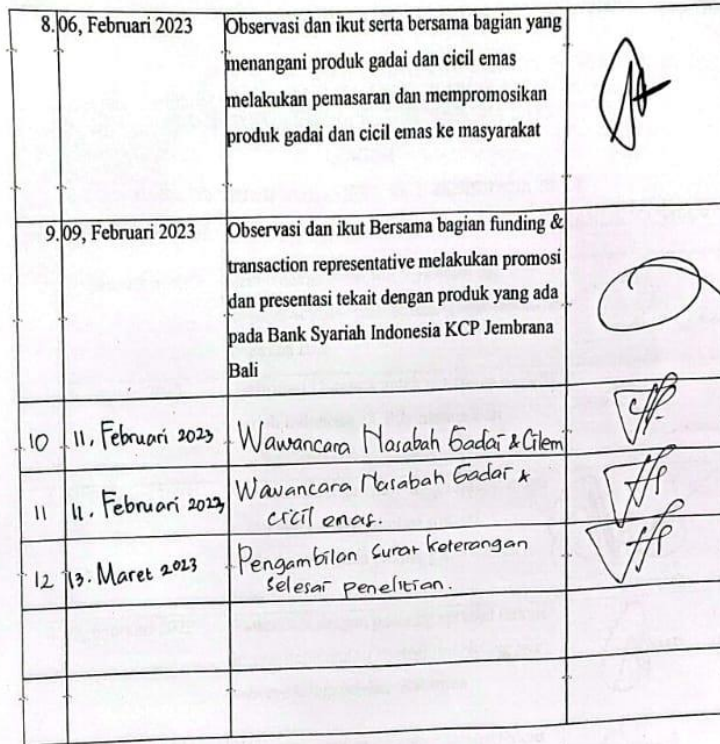 8. 06, Februari 2023 Observasi dan ikut serta bersama bagian yang
menangani produk gadai dan cicil emas
melakukan pemasaran dan mempromosikan
produk gadai dan cicil emas ke masyarakat
9. 09, Februari 2023 Observasi dan ikut Bersama bagian funding &
transaction representative melakukan promosi
dan presentasi tekait dengan produk yang ada
pada Bank Syariah Indonesia KCP Jembrana
Bali
10 11, Februari 2023 Wawancara Nasabah Gadai & Cilem
11 11, Februari 2023 Wawancara Nasabah Gadai &
cicil emas.
12 13. Maret 2023 Pengambilan surat keterangan
selesai penelitian.